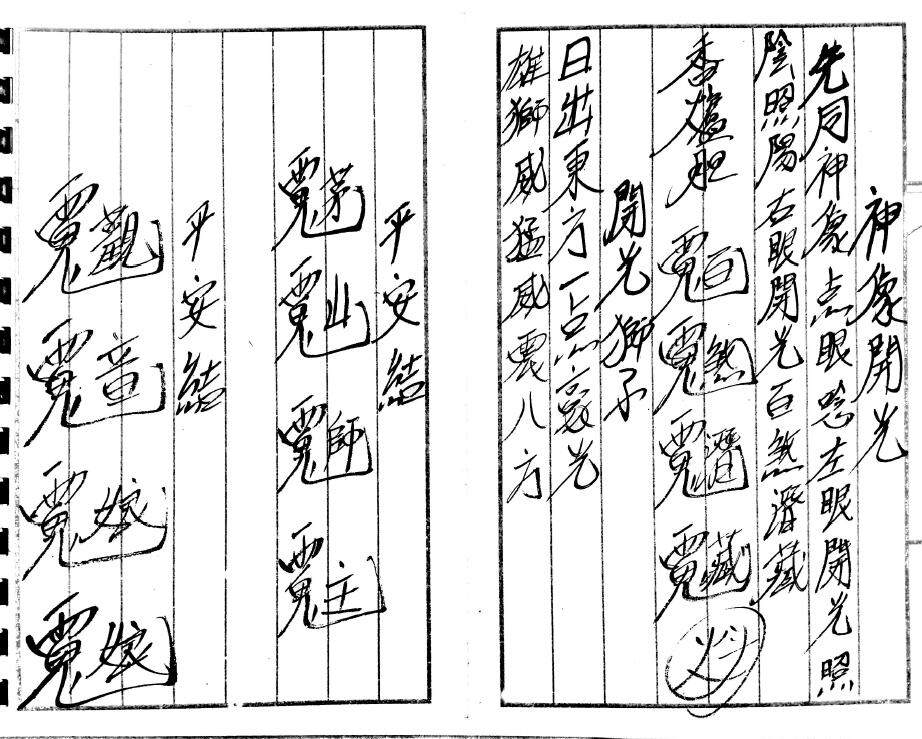 神像開光
先同神像点眼唸左眼開光照
陰照陽右眼開光百煞潛藏
香爐
百煞潛藏
開光獅子
日出東方一点毫光
雄獅威猛威震八方
平安結
茅山師主
平安結
觀音娘娘